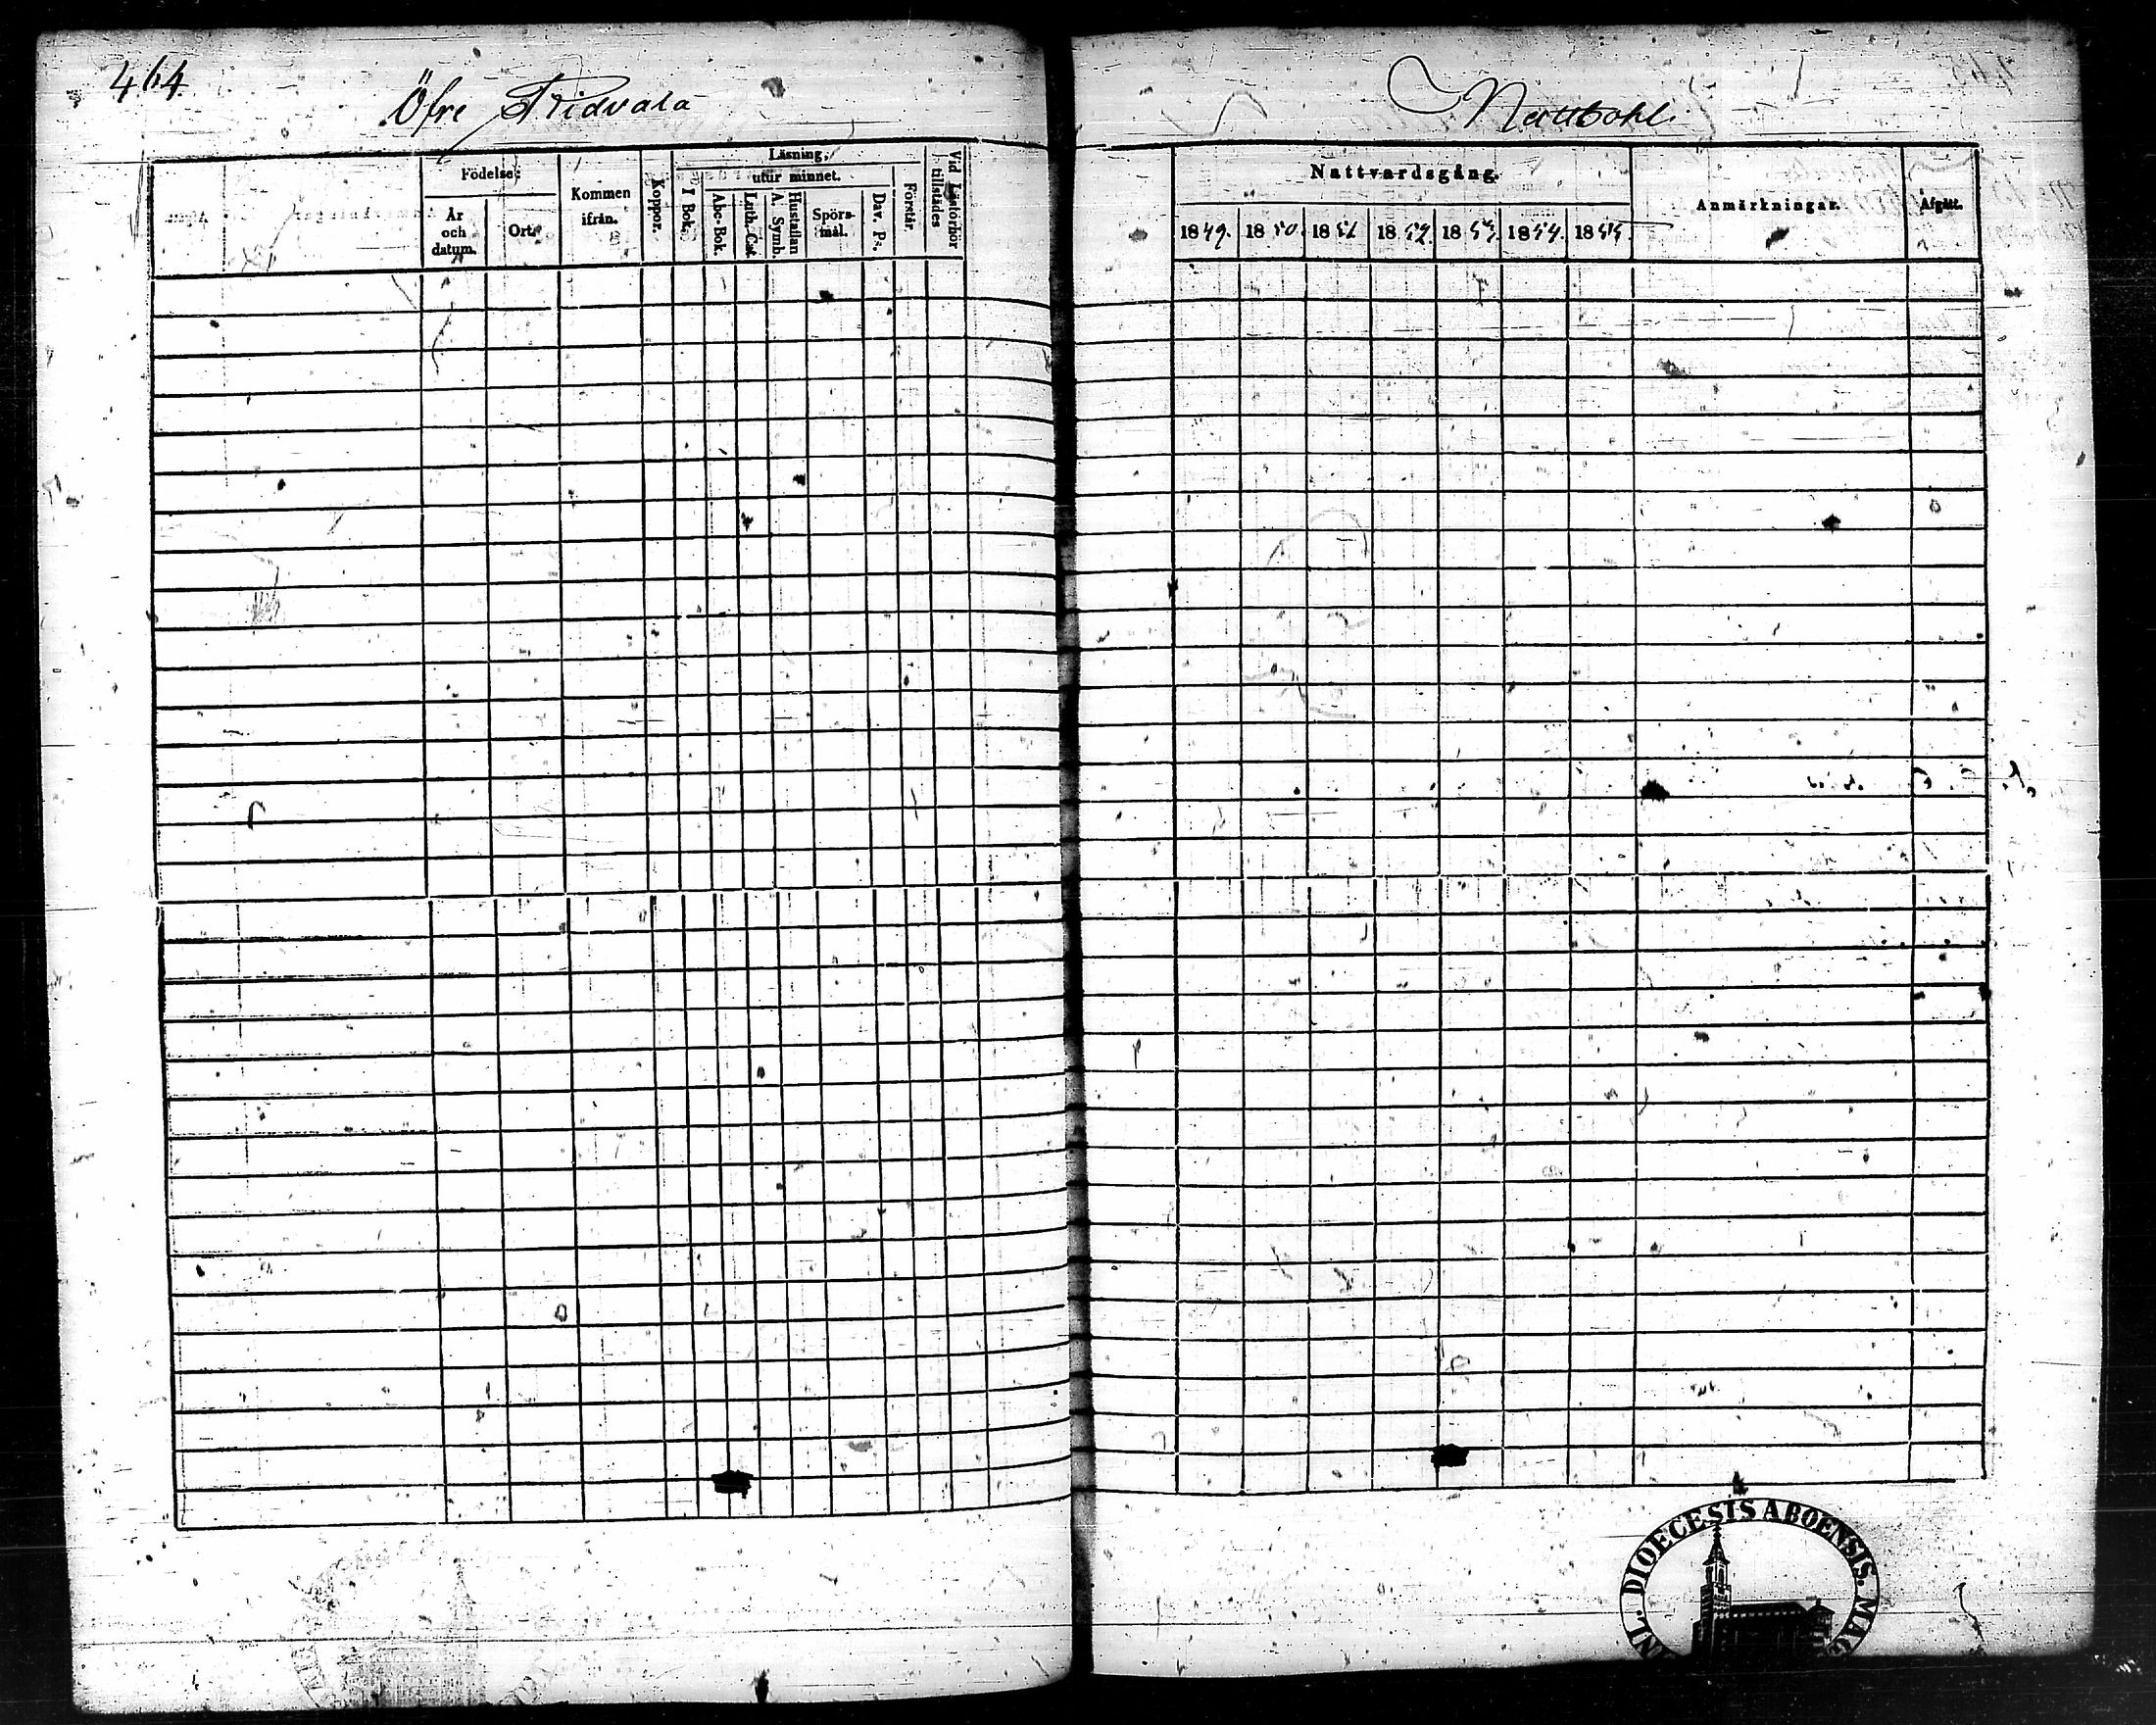 464
Öfre Ridvala
Födelse:
År och datum.
Ort.
Kommen ifrån.
Koppor.
Läsning,
utur minnet.
I Bok.
Abc-Bok.
Luth. Cat.
A. Symb.
Hustaflan
Spörsmål.
Dav. Ps.
Förstår.
Vid Läsförhör tillstädes
Nattvardsgång.
1849. 1850. 1851 1852. 1853. 1854. 1855.
Anmärkningar.
Afgått.
DIOECESIS ABOENSIS. MAG